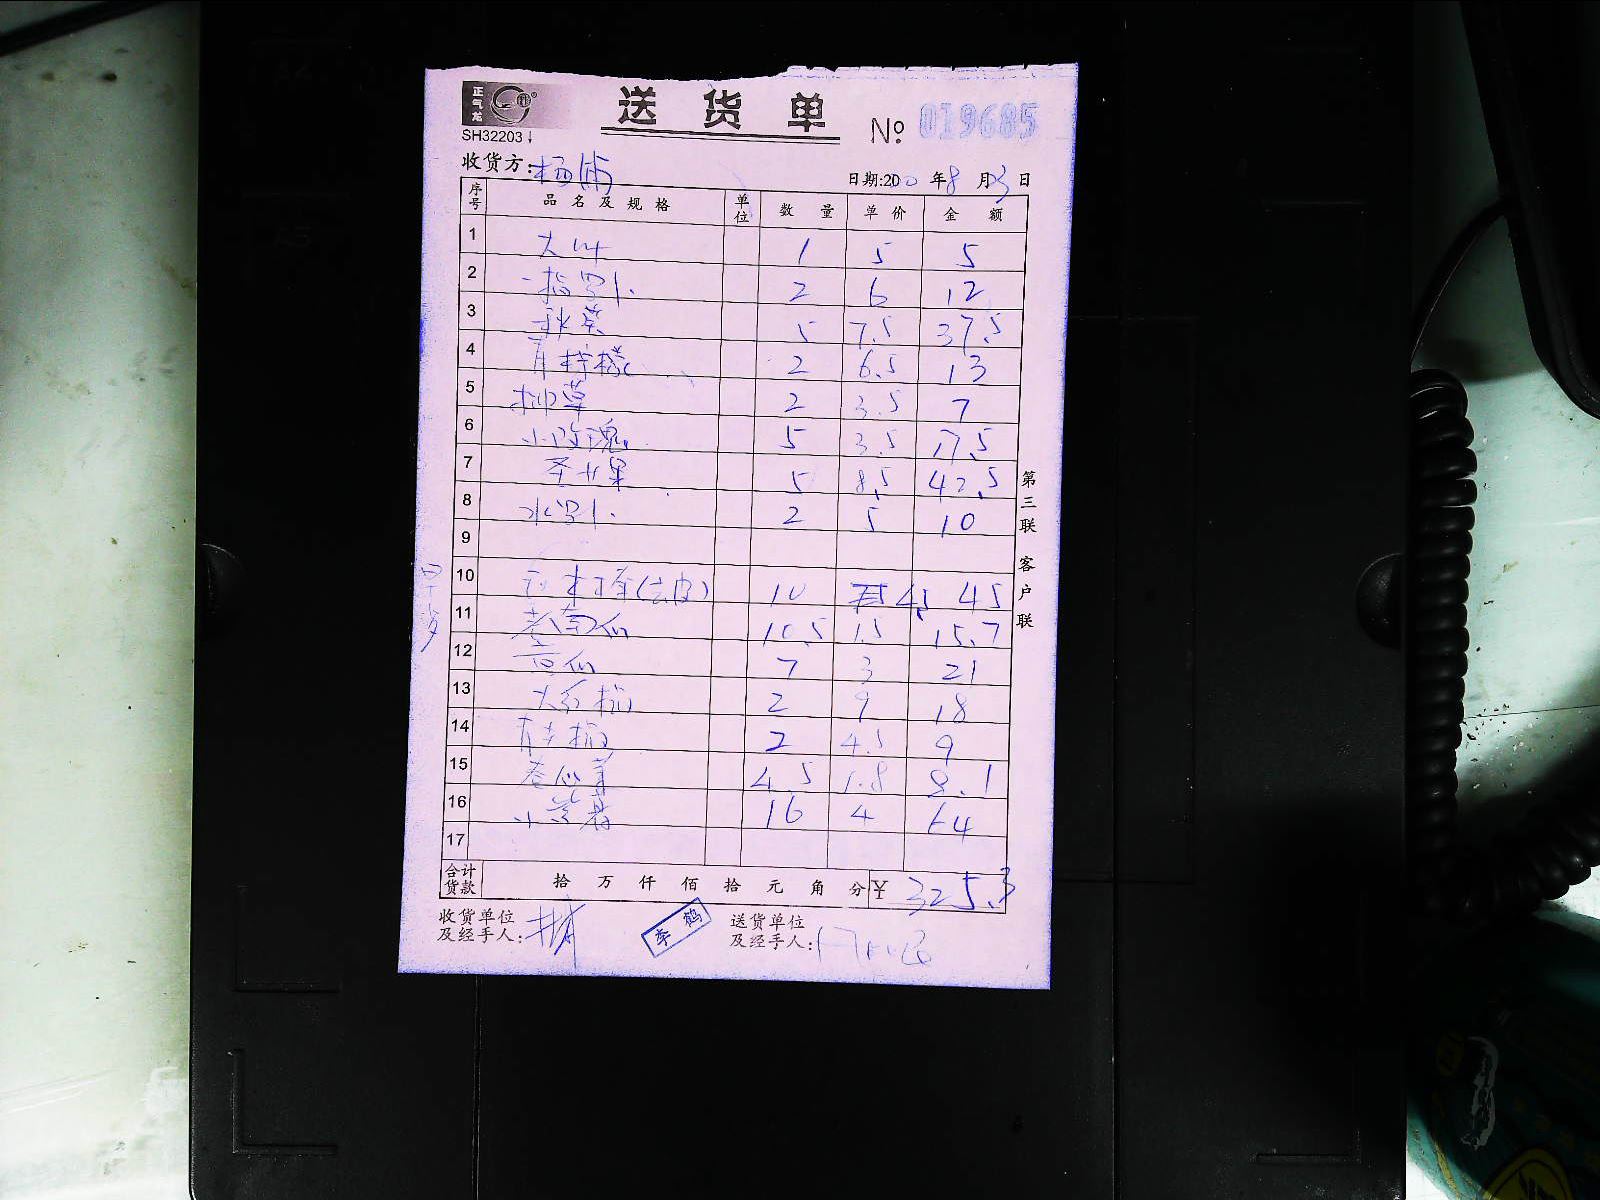 正气龙
送货单
SH32203
№ 019685
收货方: 杨浦
日期:20 年8月3日
序号 品名及规格 单位 数量 单价 金额
1 大叶 1 5 5
2 2 6 12
3 秋葵 5 7.5 37.5
4 青柠檬 2 6.5 13
5 柳草 2 3.5 7
6 小玫瑰 5 3.5 17.5
7 圣女果 5 8.5 42.5
8 2 5 10
9
10 (去皮) 10 4.5 45
11 老南瓜 10.5 1.5 15.7
12 7 3 21
13 大红椒 2 9 18
14 2 4.5 9
15 4.5 1.8 8.1
16 16 4 64
17
第三联 客户联
合计货款 拾 万 仟 佰 拾 元 角 分 ¥ 325.3
收货单位及经手人:
李鹤
送货单位及经手人: